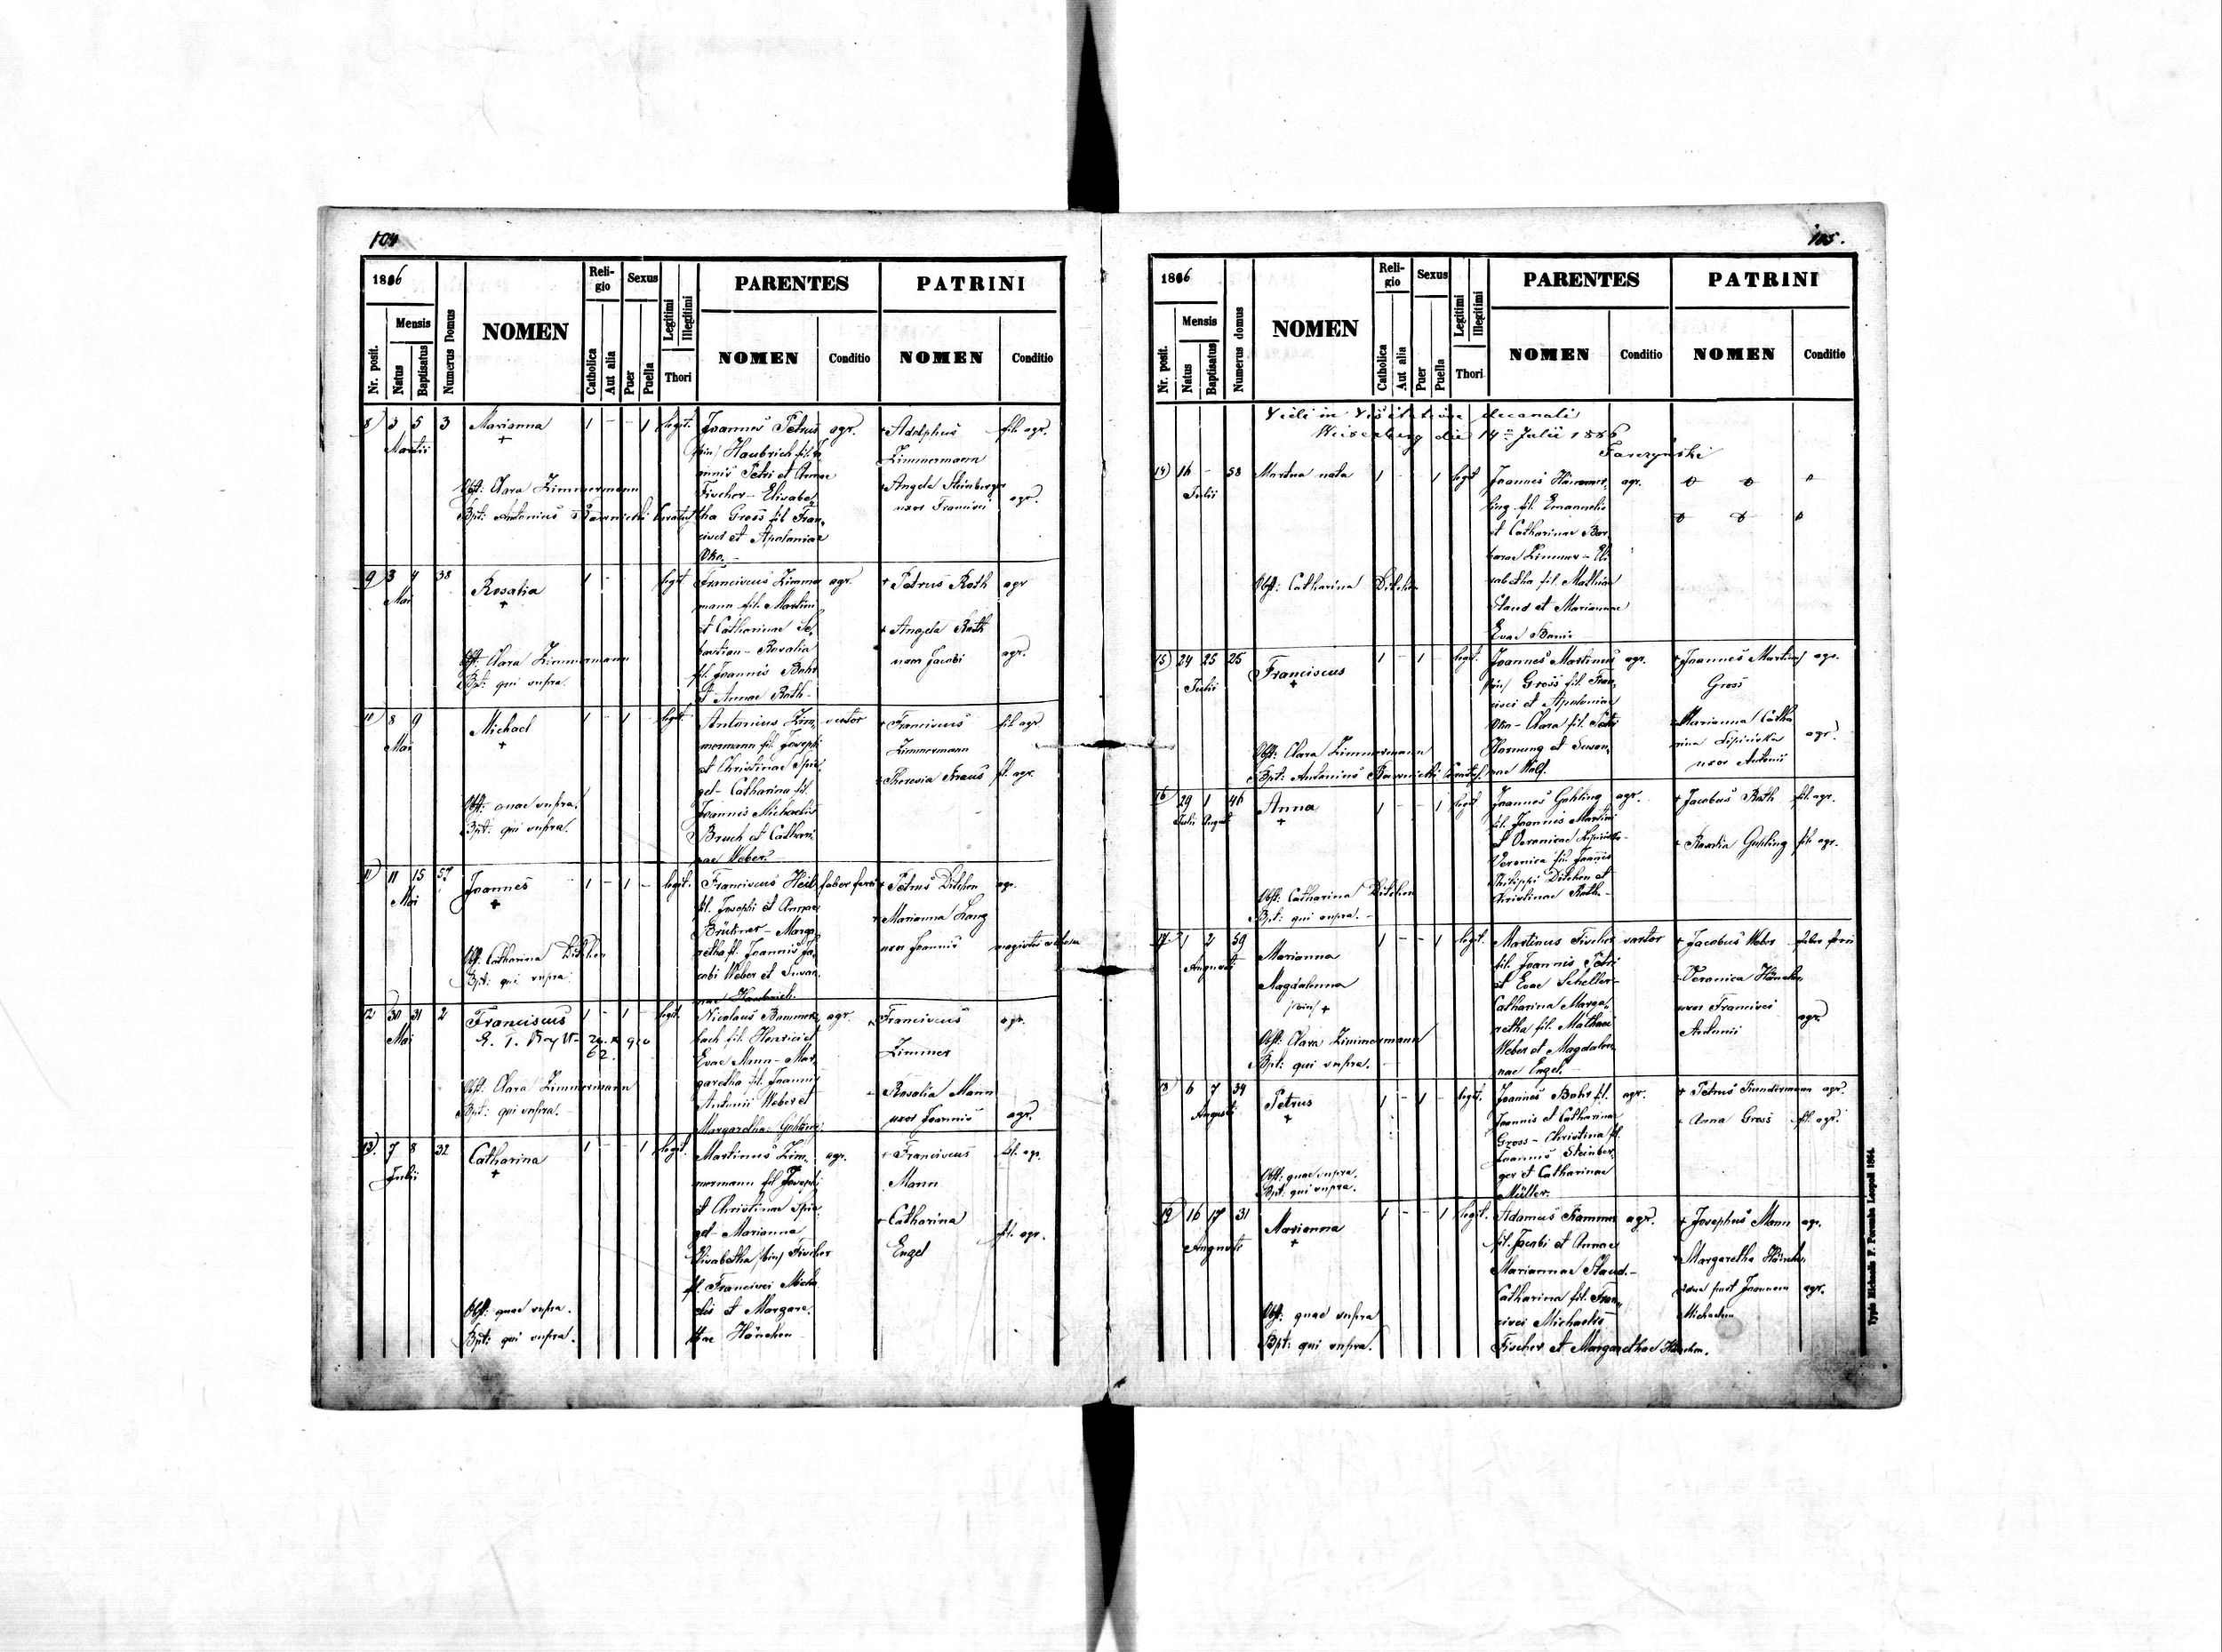 104
1886
Nr. posit.
Mensis
Natus
Baptisatus
Numerus Domus
NOMEN
Religio
Catholica
Aut alia
Sexus
Puer
Puella
Legitimi
Illegitimi
Thori
PARENTES
NOMEN
Conditio
PATRINI
NOMEN
Conditio
8 3 5 3 Marianna 1 - - 1 legit. Joannes Petrus agr. Adolphus fil. agr.
Martii
Zimmermann
Petri et Annae
Fischer - Elisabe
Angela Steinberger
uxor Francisci agr.
Obst: Clara Zimmermann
Bpt: Antonius
tha Gross fil. Fran
cisci et Apoloniae
9 3 4 38 Rosalia 1 - legit Franciscus Zimmer agr. Petrus Roth agr
Mai
mann fil. Martini
et Catharinae Se
bastian - Rosalia
fil. Joannis Bohr
et Annae Roth -
Angela Roth
uxor Jacobi agr.
Obst: Clara Zimmermann
Bpt: qui supra.
10 8 9 Michael 1 - 1 - legit. Antonius Zim Franciscus fil. agr
Mai
mermann fil. Josephi
et Christinae Spie
gel - Catharina fil.
Joannis Michaelis
Bruch et Cathari
nae Weber.
Zimmermann
Theresia fil. agr.
Obst: quae supra.
Bpt: qui supra.
11 11 15 57 Joannes 1 - 1 - legit. Franciscus Heil faber ferri Petrus Ditchen agr.
Mai
fil. Josephi et Annae
Brückner - Marga
retha fil. Joannis Ja
cobi Weber et Susan
nae Haubrich.
Marianna Lang
uxor Joannis
Obst: Catharina Ditchen
Bpt: qui supra
12 30 31 2 Franciscus 1 - 1 - legit. Nicolaus agr. Franciscus agr.
Mai
bach fil. Henrici et
Evae Mann - Mar
garetha fil. Joannis
Antonii Weber et
Margarethae Gehling
Zimmer
Rosalia Mann
uxor Joannis agr.
Obst: Clara Zimmermann
Bpt: qui supra.
13 7 8 32 Catharina 1 - - 1 legit. Martinus Zim agr. Franciscus fil. agr.
Julii
mermann fil. Josephi
et Christinae Spie
gel - Marianna
Elisabetha /bin/ Fischer
fil. Francisci Micha
elis et Margare
thae Hönchen
Mann
Catharina
Engel fil. agr.
Obst: quae supra.
Bpt: qui supra.
105.
1886
Nr. posit.
Mensis
Natus
Baptisatus
Numerus domus
NOMEN
Religio
Catholica
Aut alia
Sexus
Puer
Puella
Legitimi
Illegitimi
Thori
PARENTES
NOMEN
Conditio
PATRINI
NOMEN
Conditio
Vidi in Visitatione decanali
Weisenberg die 14 Julii 1886
14 16 - 58 Mortua nata 1 - - 1 legit Joannes agr.
Julii
ling fil. Emanuelis
et Catharinae Bar
barae Zimmer - Eli
sabetha fil. Mathiae
Staud et Mariannae
Evae
Obst: Catharina Ditchen
15 24 25 25 Franciscus 1 - 1 - legit. Joannes Martinus agr. Joannes Martinus agr.
Julii
/bin/ Gross fil. Fran
cisci et Apoloniae
- Clara fil. Petri
Hornung et Susan
nae Wolf.
Gross
Marianna Catha
rina
uxor Antonii agr.
Obst: Clara Zimmermann
Bpt: Antonius
16 29 1 46 Anna 1 - - 1 legit Joannes Gehling agr. Jacobus Roth fil. agr.
Julii August
fil. Joannis Martini
et Veronicae
Veronica fil. Joannis
Philippi Ditchen et
Christinae Roth -
Rosalia Gehling fil. agr.
Obst: Catharina Ditchen
Bpt: qui supra. -
17 1 2 59 Marianna 1 - - 1 legit. Martinus Fischer Jacobus Weber faber ferri
Augusti
Magdalenna
/bin/
fil. Joannis Petri
et Evae Scheller -
Catharina Marga
retha fil. Mathaei
Weber et Magdalen
nae Engel.
Veronica Hönchen
uxor Francisci
Antonii agr.
Obst: Clara Zimmermann
Bpt: qui supra.
18 6 7 34 Petrus 1 - 1 - legit. Joannes Bohr fil. agr. Petrus agr.
Augusti
Joannis et Catharinae
Gross - Christina fil.
Joannis Steinber
ger et Catharinae
Müller.
Anna Gross fil. agr.
Obst: quae supra.
Bpt: qui supra.
19 16 17 31 Marianna 1 - - 1 legit. Adamus agr. Josephus Mann agr.
Augusti
fil. Jacobi et Annae
Mariannae Staud. -
Catharina fil. Fran
cisci Michaelis
Fischer et Margarethae Hönchen.
Margaretha Hönchen
Joannem agr.
Michaelem
Obst: quae supra
Bpt: qui supra.
Typis Michaelis F. Poremba Leopoli 1864.